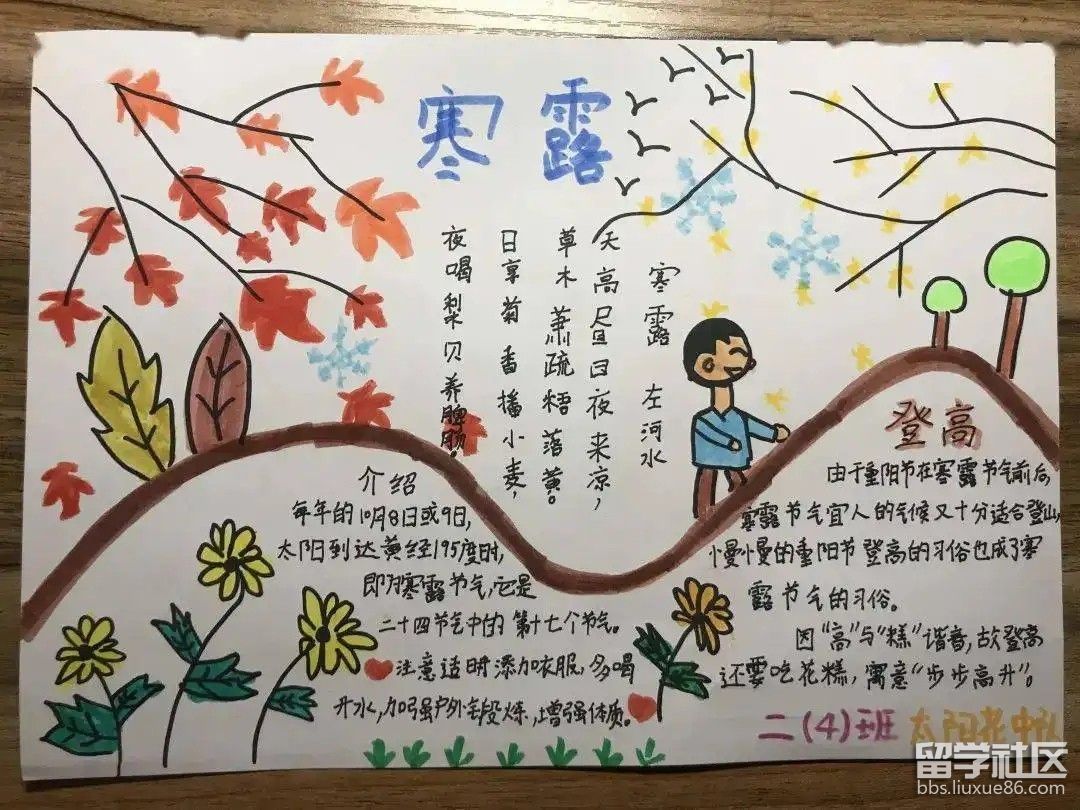 寒露
寒露 左河水
天高昼日夜来凉，
草木萧疏梧落黄。
日享菊香播小麦，
夜喝梨贝养脾肠。
介绍
每年的10月8日或9日，
太阳到达黄经195度时，
即为寒露节气，它是
二十四节气中的第十七个节气。
注意适时添加衣服，多喝
开水，加强户外锻炼，增强体质。
登高
由于重阳节在寒露节气前后，
寒露节气宜人的气候又十分适合登山，
慢慢的重阳节登高的习俗也成了寒
露节气的习俗。
因“高”与“糕”谐音，故登高
还要吃花糕，寓意“步步高升”。
二(4)班 太阳花中队
留学社区
bbs.liuxue86.com